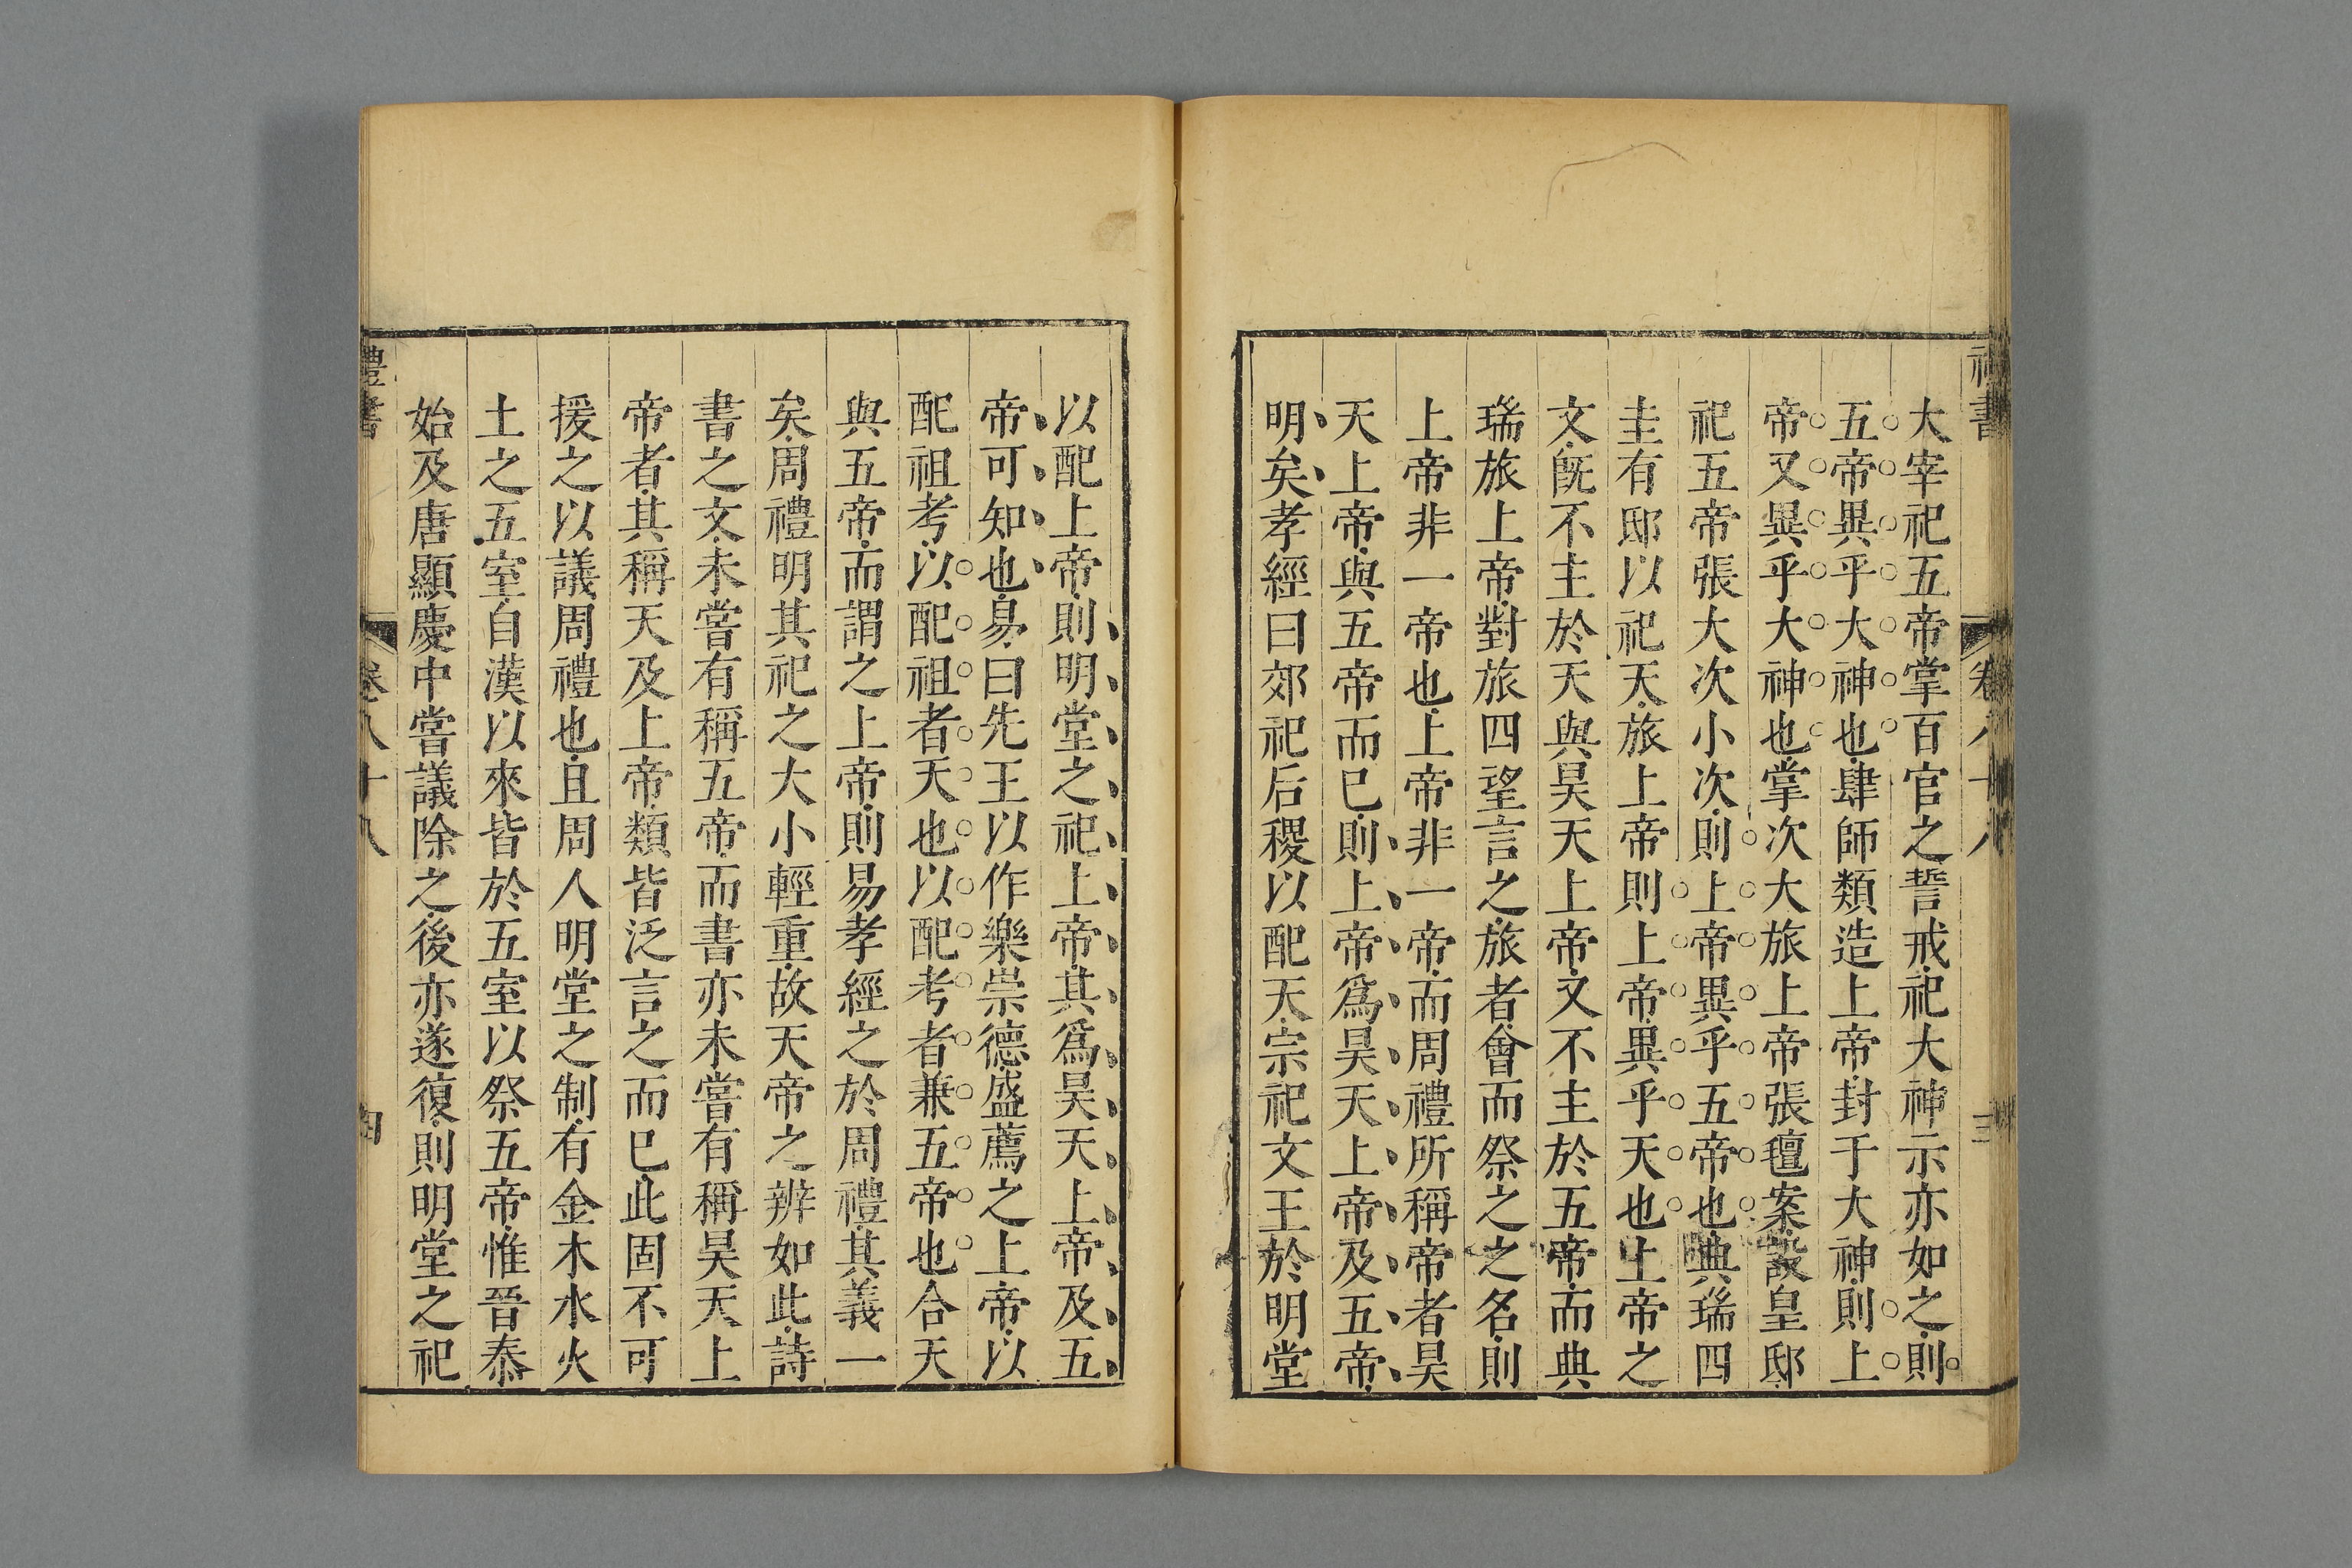 大宰祀五帝掌百官之誓戒祀大神示亦如之則
五帝異乎大神也肆師類造上帝封于大神則上
帝又異乎大神也掌次大旅上帝張氊案設皇邸
祀五帝張大次小次則上帝異乎五帝也典瑞四
圭有邸以祀天旅上帝則上帝異乎天也上帝之
文旣不主於天與昊天上帝又不主於五帝而典
瑞旅上帝對旅四望言之旅者會而祭之之名則
上帝非一帝也上帝非一帝而周禮所稱帝者昊
天上帝與五帝而已則上帝爲昊天上帝及五帝
明矣孝經曰郊祀后稷以配天宗祀文王於明堂
以配上帝則明堂之祀上帝其爲昊天上帝及五
帝可知也易曰先王以作樂崇德盛薦之上帝以
配祖考以配祖者天也以配考者兼五帝也合天
與五帝而謂之上帝則易孝經之於周禮其義一
矣周禮明其祀之大小輕重故天帝之辨如此詩
書之文未嘗有稱五帝而書亦未嘗有稱昊天上
帝者其稱天及上帝類皆泛言之而已此固不可
援之以議周禮也且周人明堂之制有金木水火
土之五室自漢以來皆於五室以祭五帝惟晉泰
始及唐顯慶中嘗議除之後亦遂復則明堂之祀
禮書 卷八十八 四